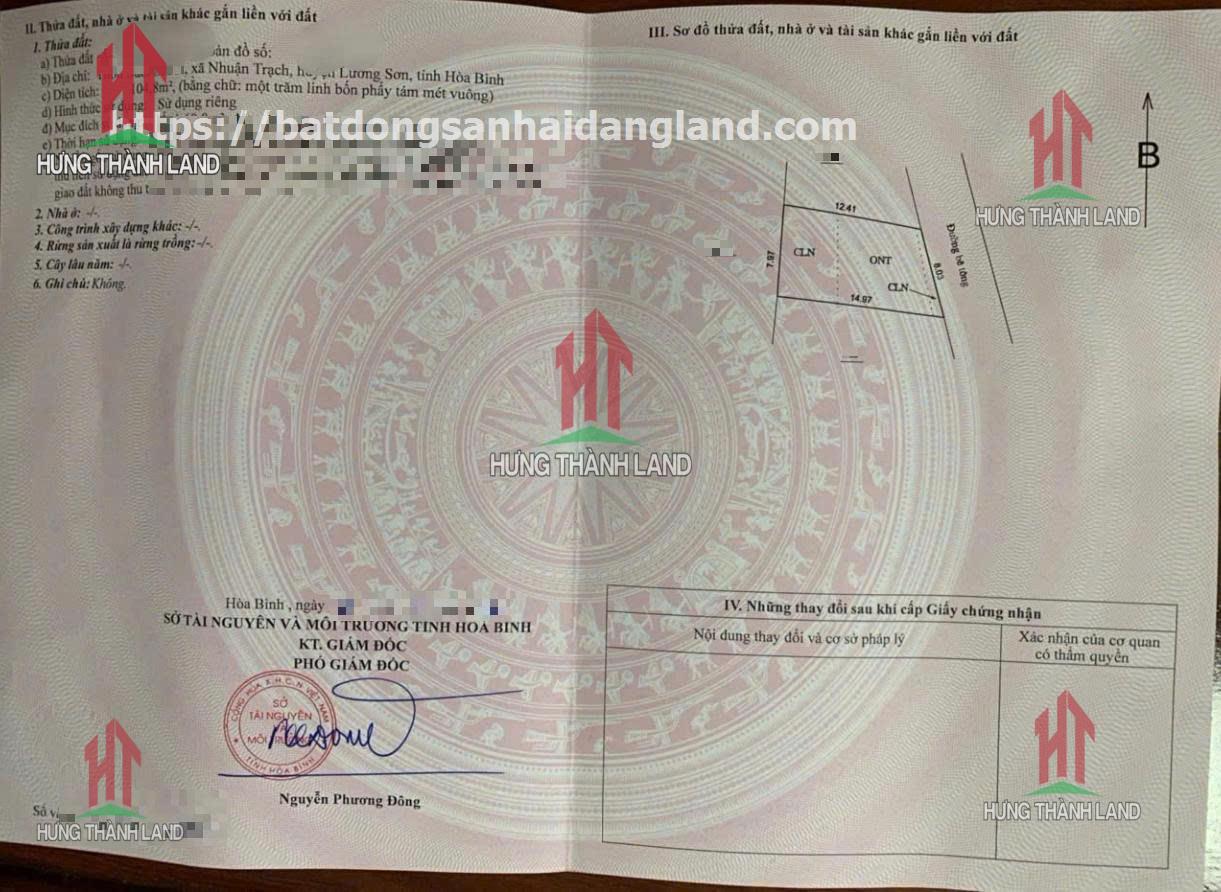 II. Thửa đất, nhà ở và tài sản khác gắn liền với đất
1. Thửa đất:
a) Thửa đất bản đồ số:
b) Địa chỉ: xã Nhuận Trạch, huyện Lương Sơn, tỉnh Hòa Bình
c) Diện tích: 104,8m², (bằng chữ: một trăm linh bốn phẩy tám mét vuông)
d) Hình thức sử dụng: Sử dụng riêng
đ) Mục đích
e) Thời hạn sử dụng
https://batdongsanhaidangland.com
HƯNG THÀNH LAND
giao đất không thu
2. Nhà ở: -/-.
3. Công trình xây dựng khác: -/-.
4. Rừng sản xuất là rừng trồng: -/-.
5. Cây lâu năm: -/-.
6. Ghi chú: Không.
III. Sơ đồ thửa đất, nhà ở và tài sản khác gắn liền với đất
B
HƯNG THÀNH LAND
12.41
7.97
CLN
ONT
CLN
8.03
Đường bê tông
14.97
HƯNG THÀNH LAND
Hòa Bình , ngày
SỞ TÀI NGUYÊN VÀ MÔI TRƯỜNG TỈNH HÒA BÌNH
KT. GIÁM ĐỐC
PHÓ GIÁM ĐỐC
CỘNG HÒA X.H.C.N VIỆT NAM
SỞ
TÀI NGUYÊN
MÔI TRƯỜNG
TỈNH HÒA BÌNH
Nguyễn Phương Đông
Số v
HƯNG THÀNH LAND
IV. Những thay đổi sau khi cấp Giấy chứng nhận
Nội dung thay đổi và cơ sở pháp lý
Xác nhận của cơ quan
có thẩm quyền
HƯNG THÀNH LAND